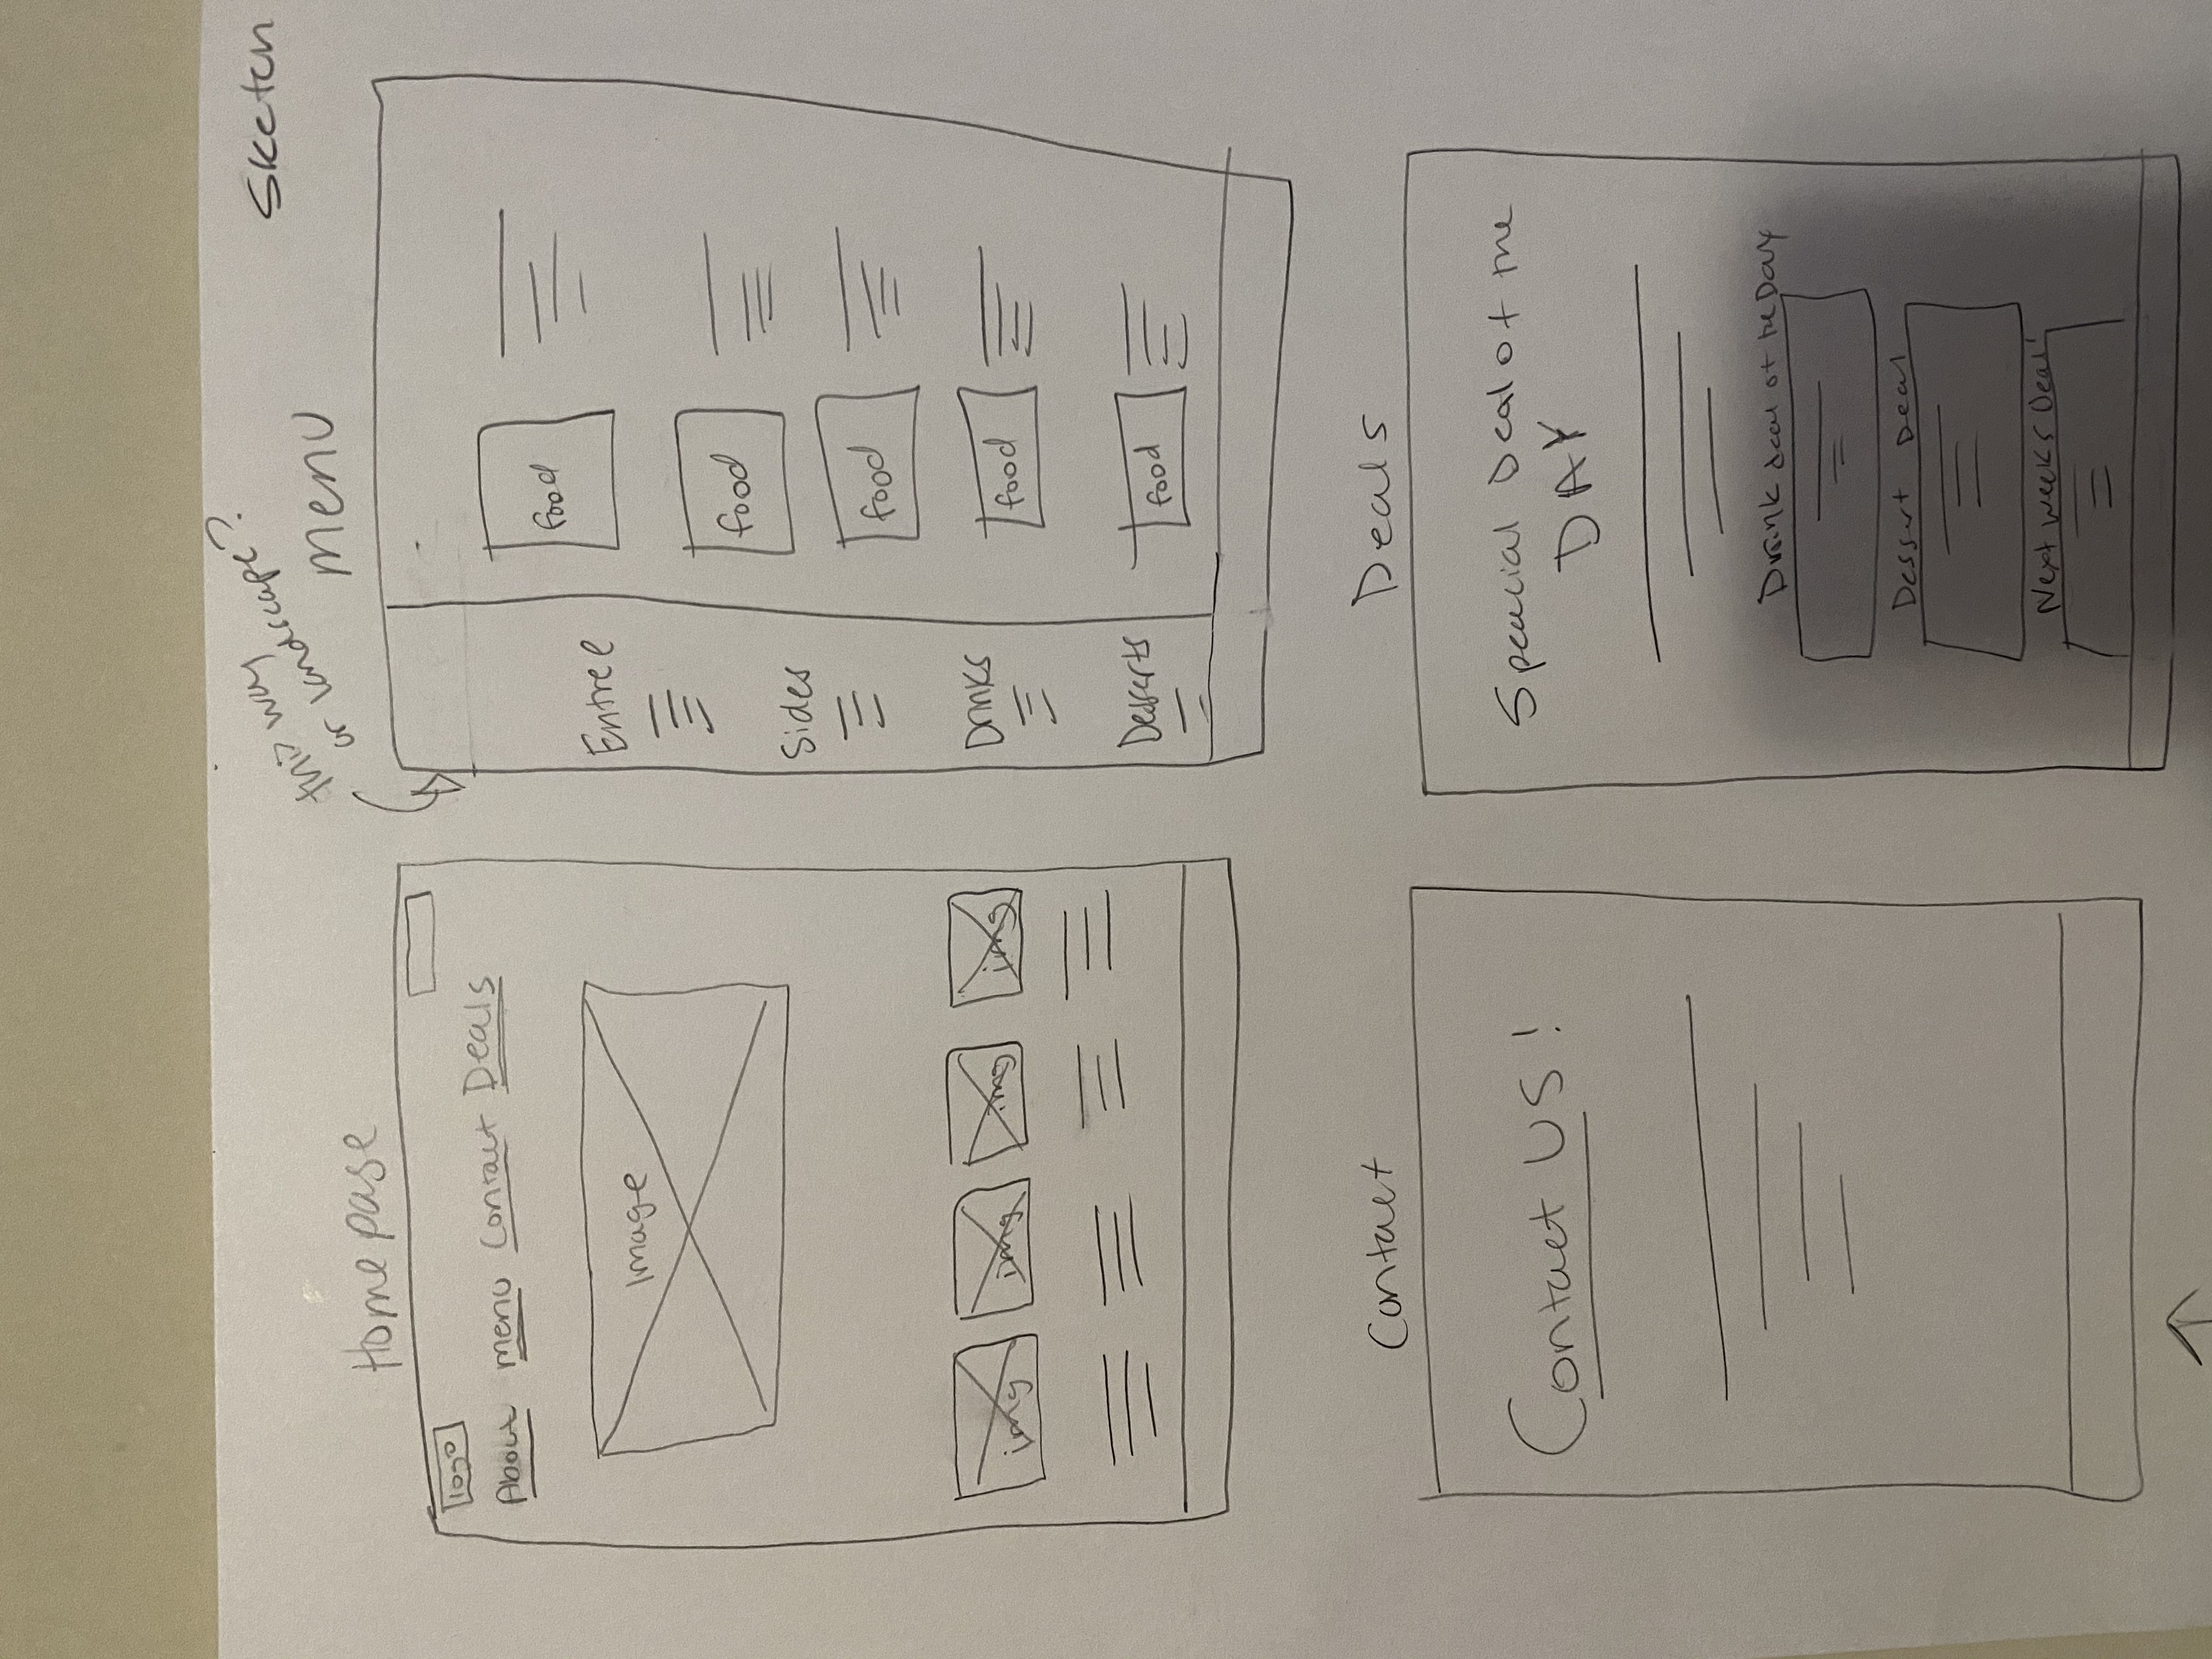 Sketch
this way
or landscape?
Homepage
logo
About menu Contact Deals
Image
img img img img
menu
Entree
Sides
Drinks
Desserts
food
food
food
food
food
Contact
Contact US!
Deals
Speacial Deal of the
DAY
Drink deal of the Day
Dessert Deal
Next weeks Deal!